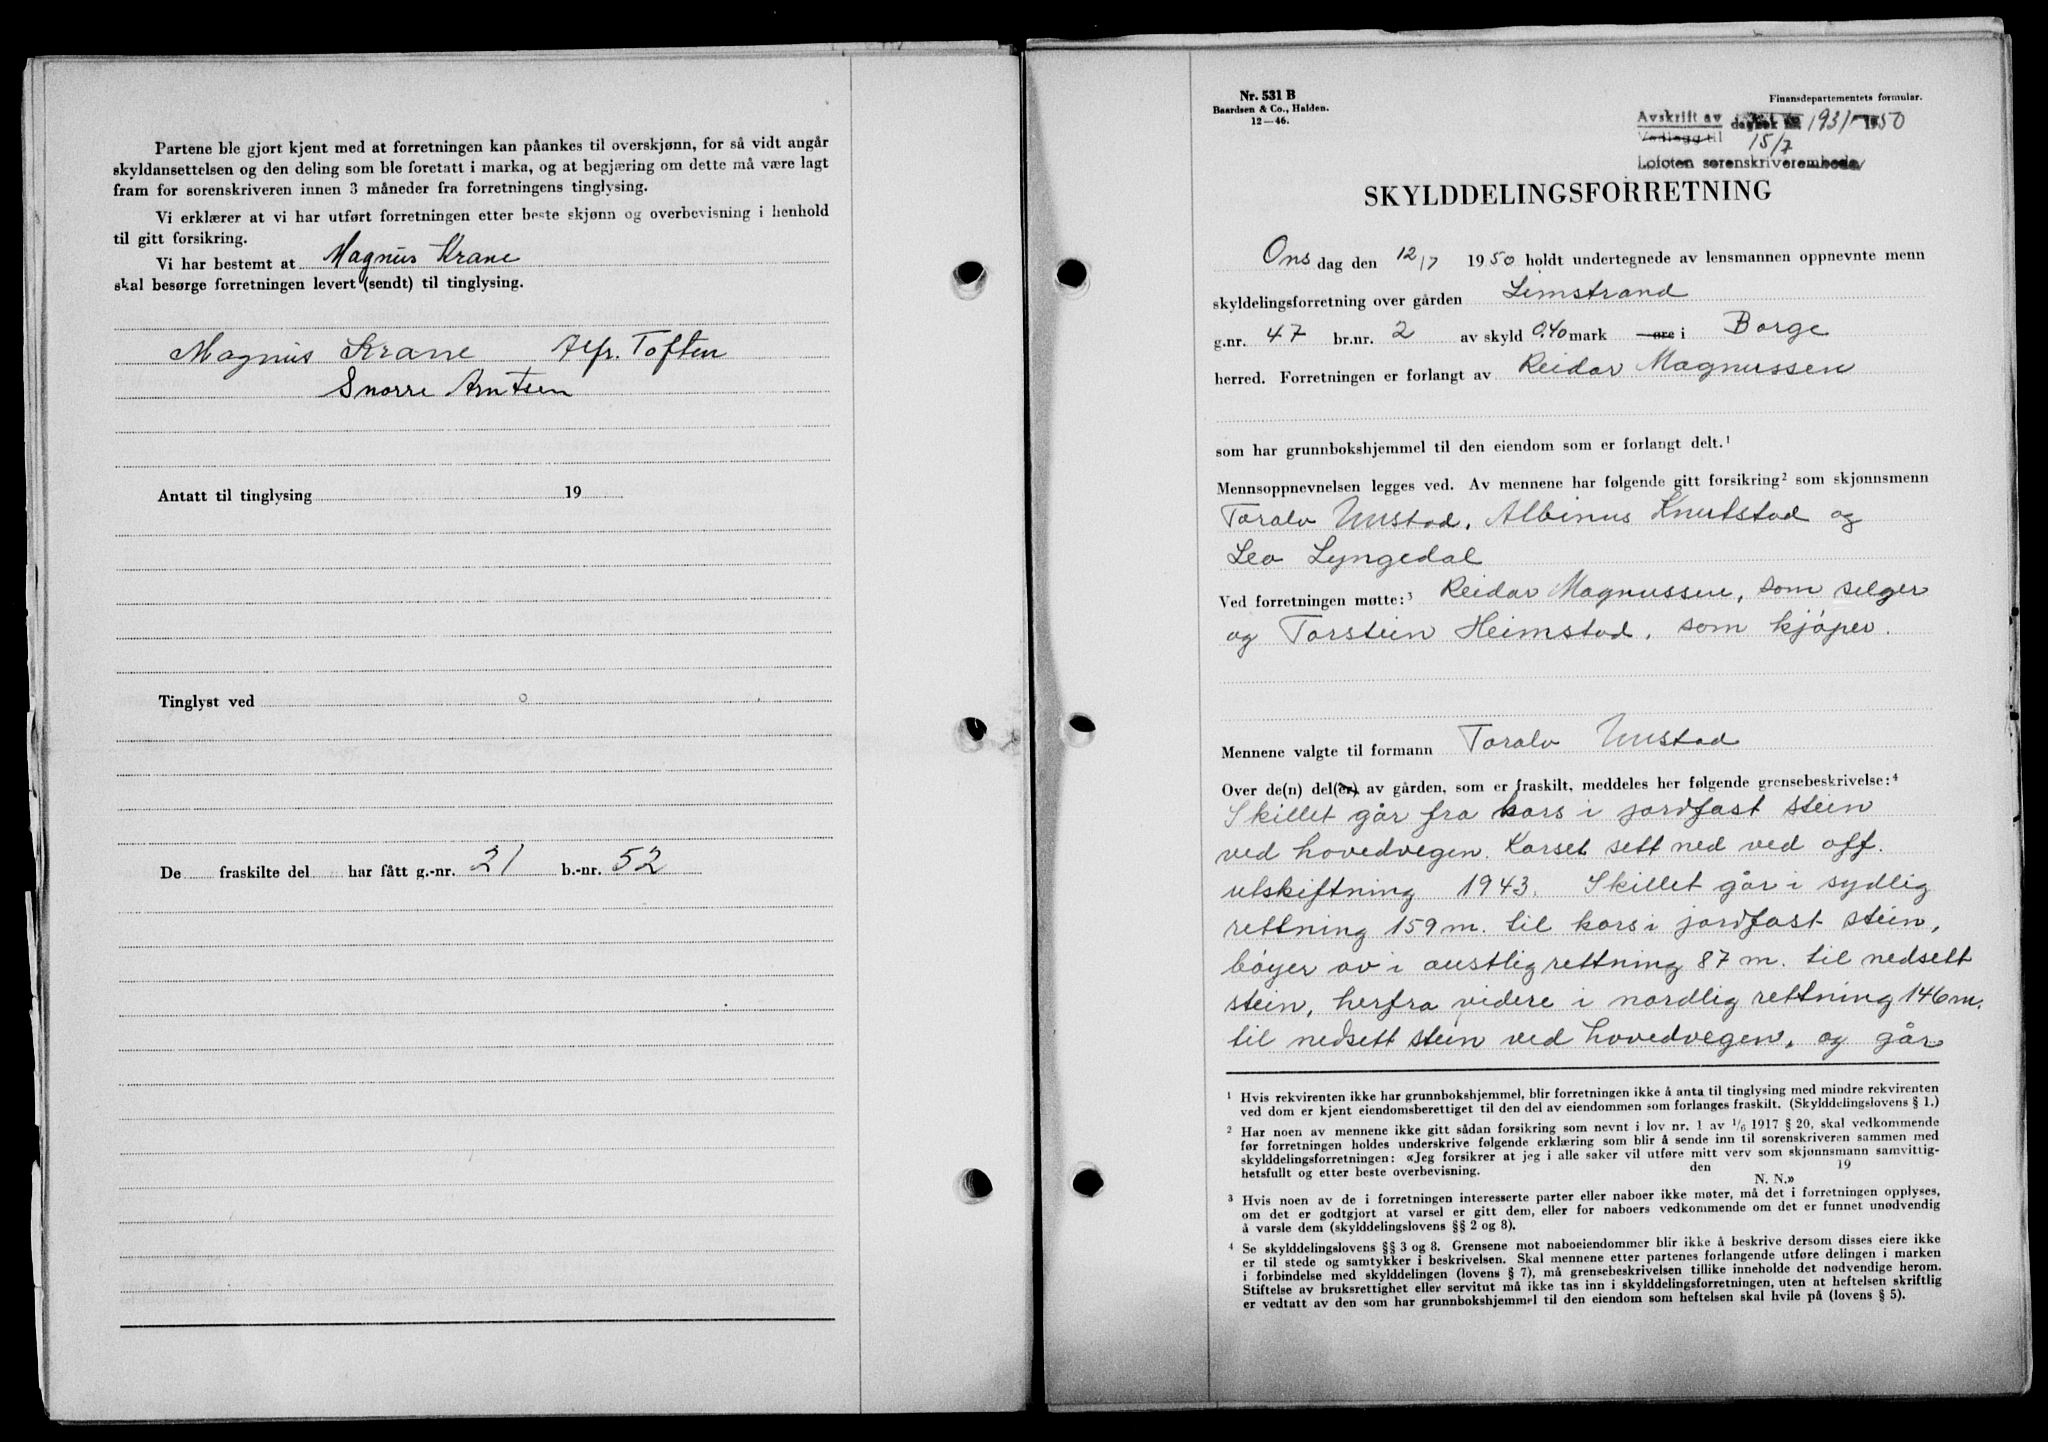 Partene ble gjort kjent med at forretningen kan påankes til overskjønn, for så vidt angår
skyldansettelsen og den deling som ble foretatt i marka, og at begjæring om dette må være lagt
fram for sorenskriveren innen 3 måneder fra forretningens tinglysing.
Vi erklærer at vi har utført forretningen etter beste skjønn og overbevisning i henhold
til gitt forsikring.
Vi har bestemt at Magnus Krane
skal besørge forretningen levert (sendt) til tinglysing.
Magnus Krane Alfr. Toften
Snorre Arntsen
Antatt til tinglysing 19
Tinglyst ved
De fraskilte del har fått g.-nr. 21 b.-nr. 52
Nr. 531 B
Baardsen & Co., Halden.
12—46.
Finansdepartementets formular.
Avskrift av dagbok nr. 1931 1950
Vedlegg til 15/7
Lofoten sorenskriverembede
SKYLDDELINGSFORRETNING
Ons dag den 12/7 1950 holdt undertegnede av lensmannen oppnevnte menn
skyldelingsforretning over gården Limstrand
g.nr. 47 br.nr. 2 av skyld 0.40 mark øre i Borge
herred. Forretningen er forlangt av Reidar Magnussen
som har grunnbokshjemmel til den eiendom som er forlangt delt.¹
Mennsoppnevnelsen legges ved. Av mennene har følgende gitt forsikring² som skjønnsmenn
Toralv Unstad, Albinus Knutstad og
Leo Lyngedal
Ved forretningen møtte:³ Reidar Magnussen, som selger
og Torstein Heimstad, som kjøper.
Mennene valgte til formann Toralv Unstad
Over de(n) del(er) av gården, som er fraskilt, meddeles her følgende grensebeskrivelse:⁴
Skillet går fra kors i jordfast stein
ved hovedvegen. Korset sett ned ved off.
utskiftning 1943. Skillet går i sydlig
rettning 159 m. til kors i jordfast stein,
bøyer av i austlig rettning 87 m. til nedsett
stein, herfra videre i nordlig rettning 146 m.
til nedsett stein ved hovedvegen, og går
¹ Hvis rekvirenten ikke har grunnbokshjemmel, blir forretningen ikke å anta til tinglysing med mindre rekvirenten
ved dom er kjent eiendomsberettiget til den del av eiendommen som forlanges fraskilt. (Skylddelingslovens § 1.)
² Har noen av mennene ikke gitt sådan forsikring som nevnt i lov nr. 1 av 1/6 1917 § 20, skal vedkommende
før forretningen holdes underskrive følgende erklæring som blir å sende inn til sorenskriveren sammen med
skylddelingsforretningen: «Jeg forsikrer at jeg i alle saker vil utføre mitt verv som skjønnsmann samvittig-
hetsfullt og etter beste overbevisning. den 19
N. N.»
³ Hvis noen av de i forretningen interesserte parter eller naboer ikke møter, må det i forretningen opplyses,
om det er godtgjort at varsel er gitt dem, eller for naboers vedkommende om det er funnet unødvendig
å varsle dem (skylddelingslovens §§ 2 og 8).
⁴ Se skylddelingslovens §§ 3 og 8. Grensene mot naboeiendommer blir ikke å beskrive dersom disses eiere ikke
er til stede og samtykker i beskrivelsen. Skal mennene etter partenes forlangende utføre delingen i marken
i forbindelse med skylddelingen (lovens § 7), må grensebeskrivelsen tillike inneholde det nødvendige herom.
Stiftelse av bruksrettighet eller servitut må ikke tas inn i skylddelingsforretningen, uten at heftelsen skriftlig
er vedtatt av den som har grunnbokshjemmel til den eiendom som heftelsen skal hvile på (lovens § 5).